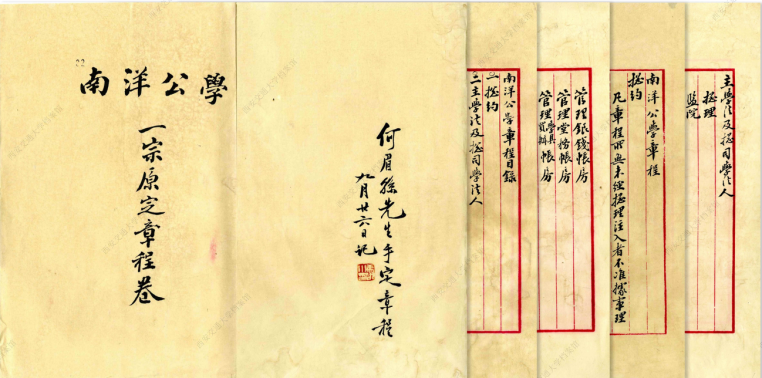 22
南洋公學
一宗原定章程卷
何眉孫先生手定章程
九月廿六日記
南洋公學章程目錄
一總約
二主學法及總司學法人
管理銀錢帳房
管理堂務帳房
管理學具賞輯帳房
南洋公學章程
總約
凡章程所無未經總理注入者不准據事理
主學法及總司學法人
總理
監院